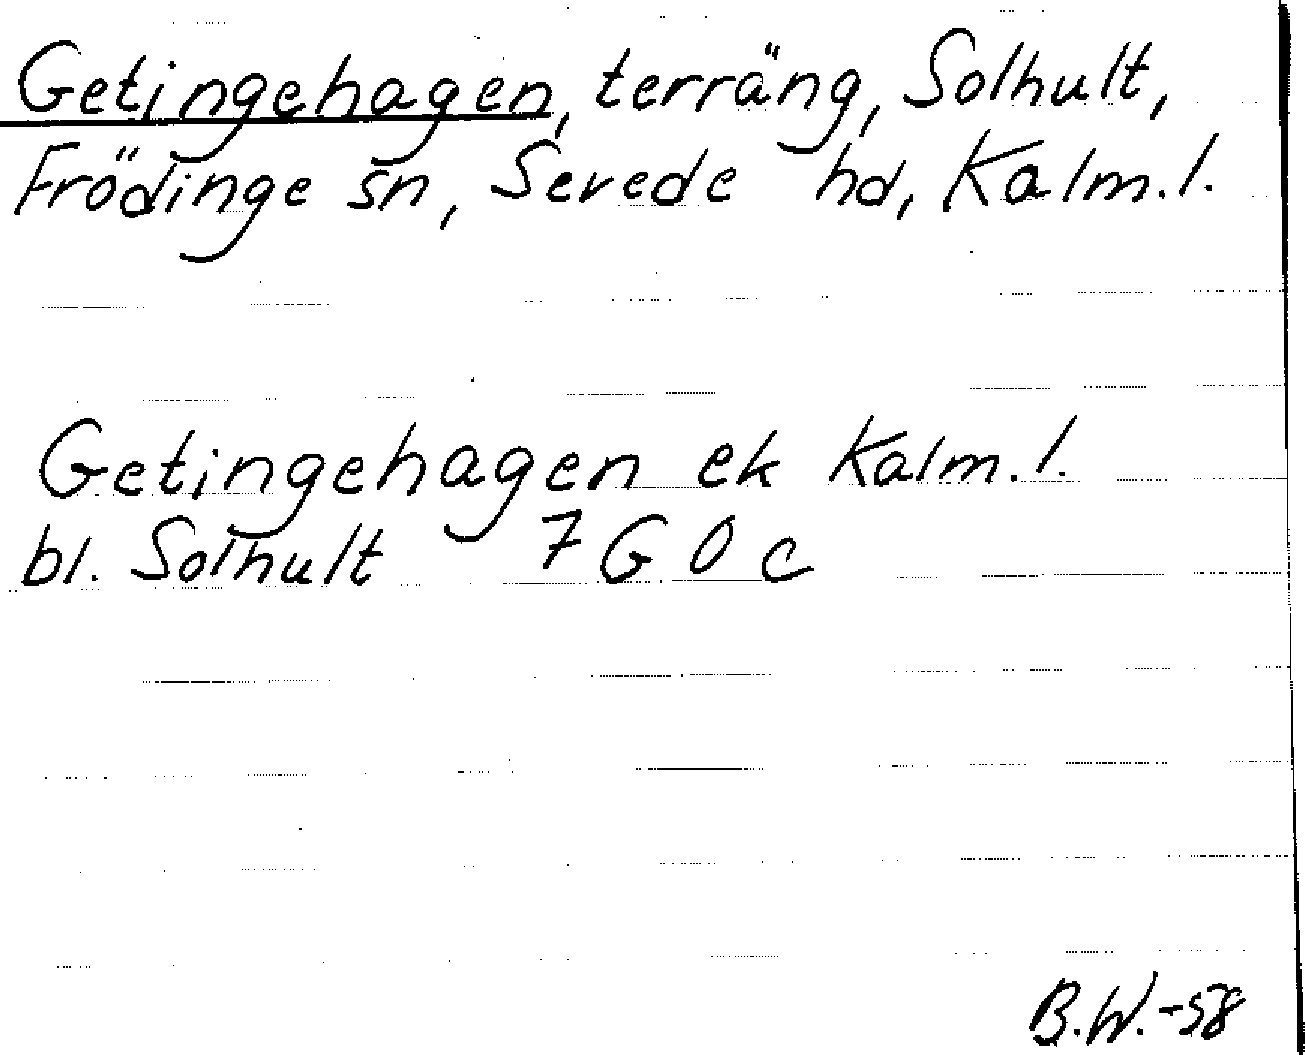 Getingehagen, terräng, Solhult,
Frödinge sn, Sevede hd, Kalm. l.
Getingehagen ek Kalm. l.
bl. Solhult 7 G 0 c
B.W.-58